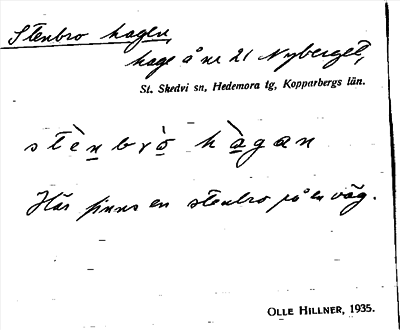 Stenbro hagen,
hage å nr 21 Nyberget,
St. Skedvi sn, Hedemora tg, Kopparbergs län.
stèn brò hàgan
Här finns en stenbro på en väg.
OLLE HILLNER, 1935.